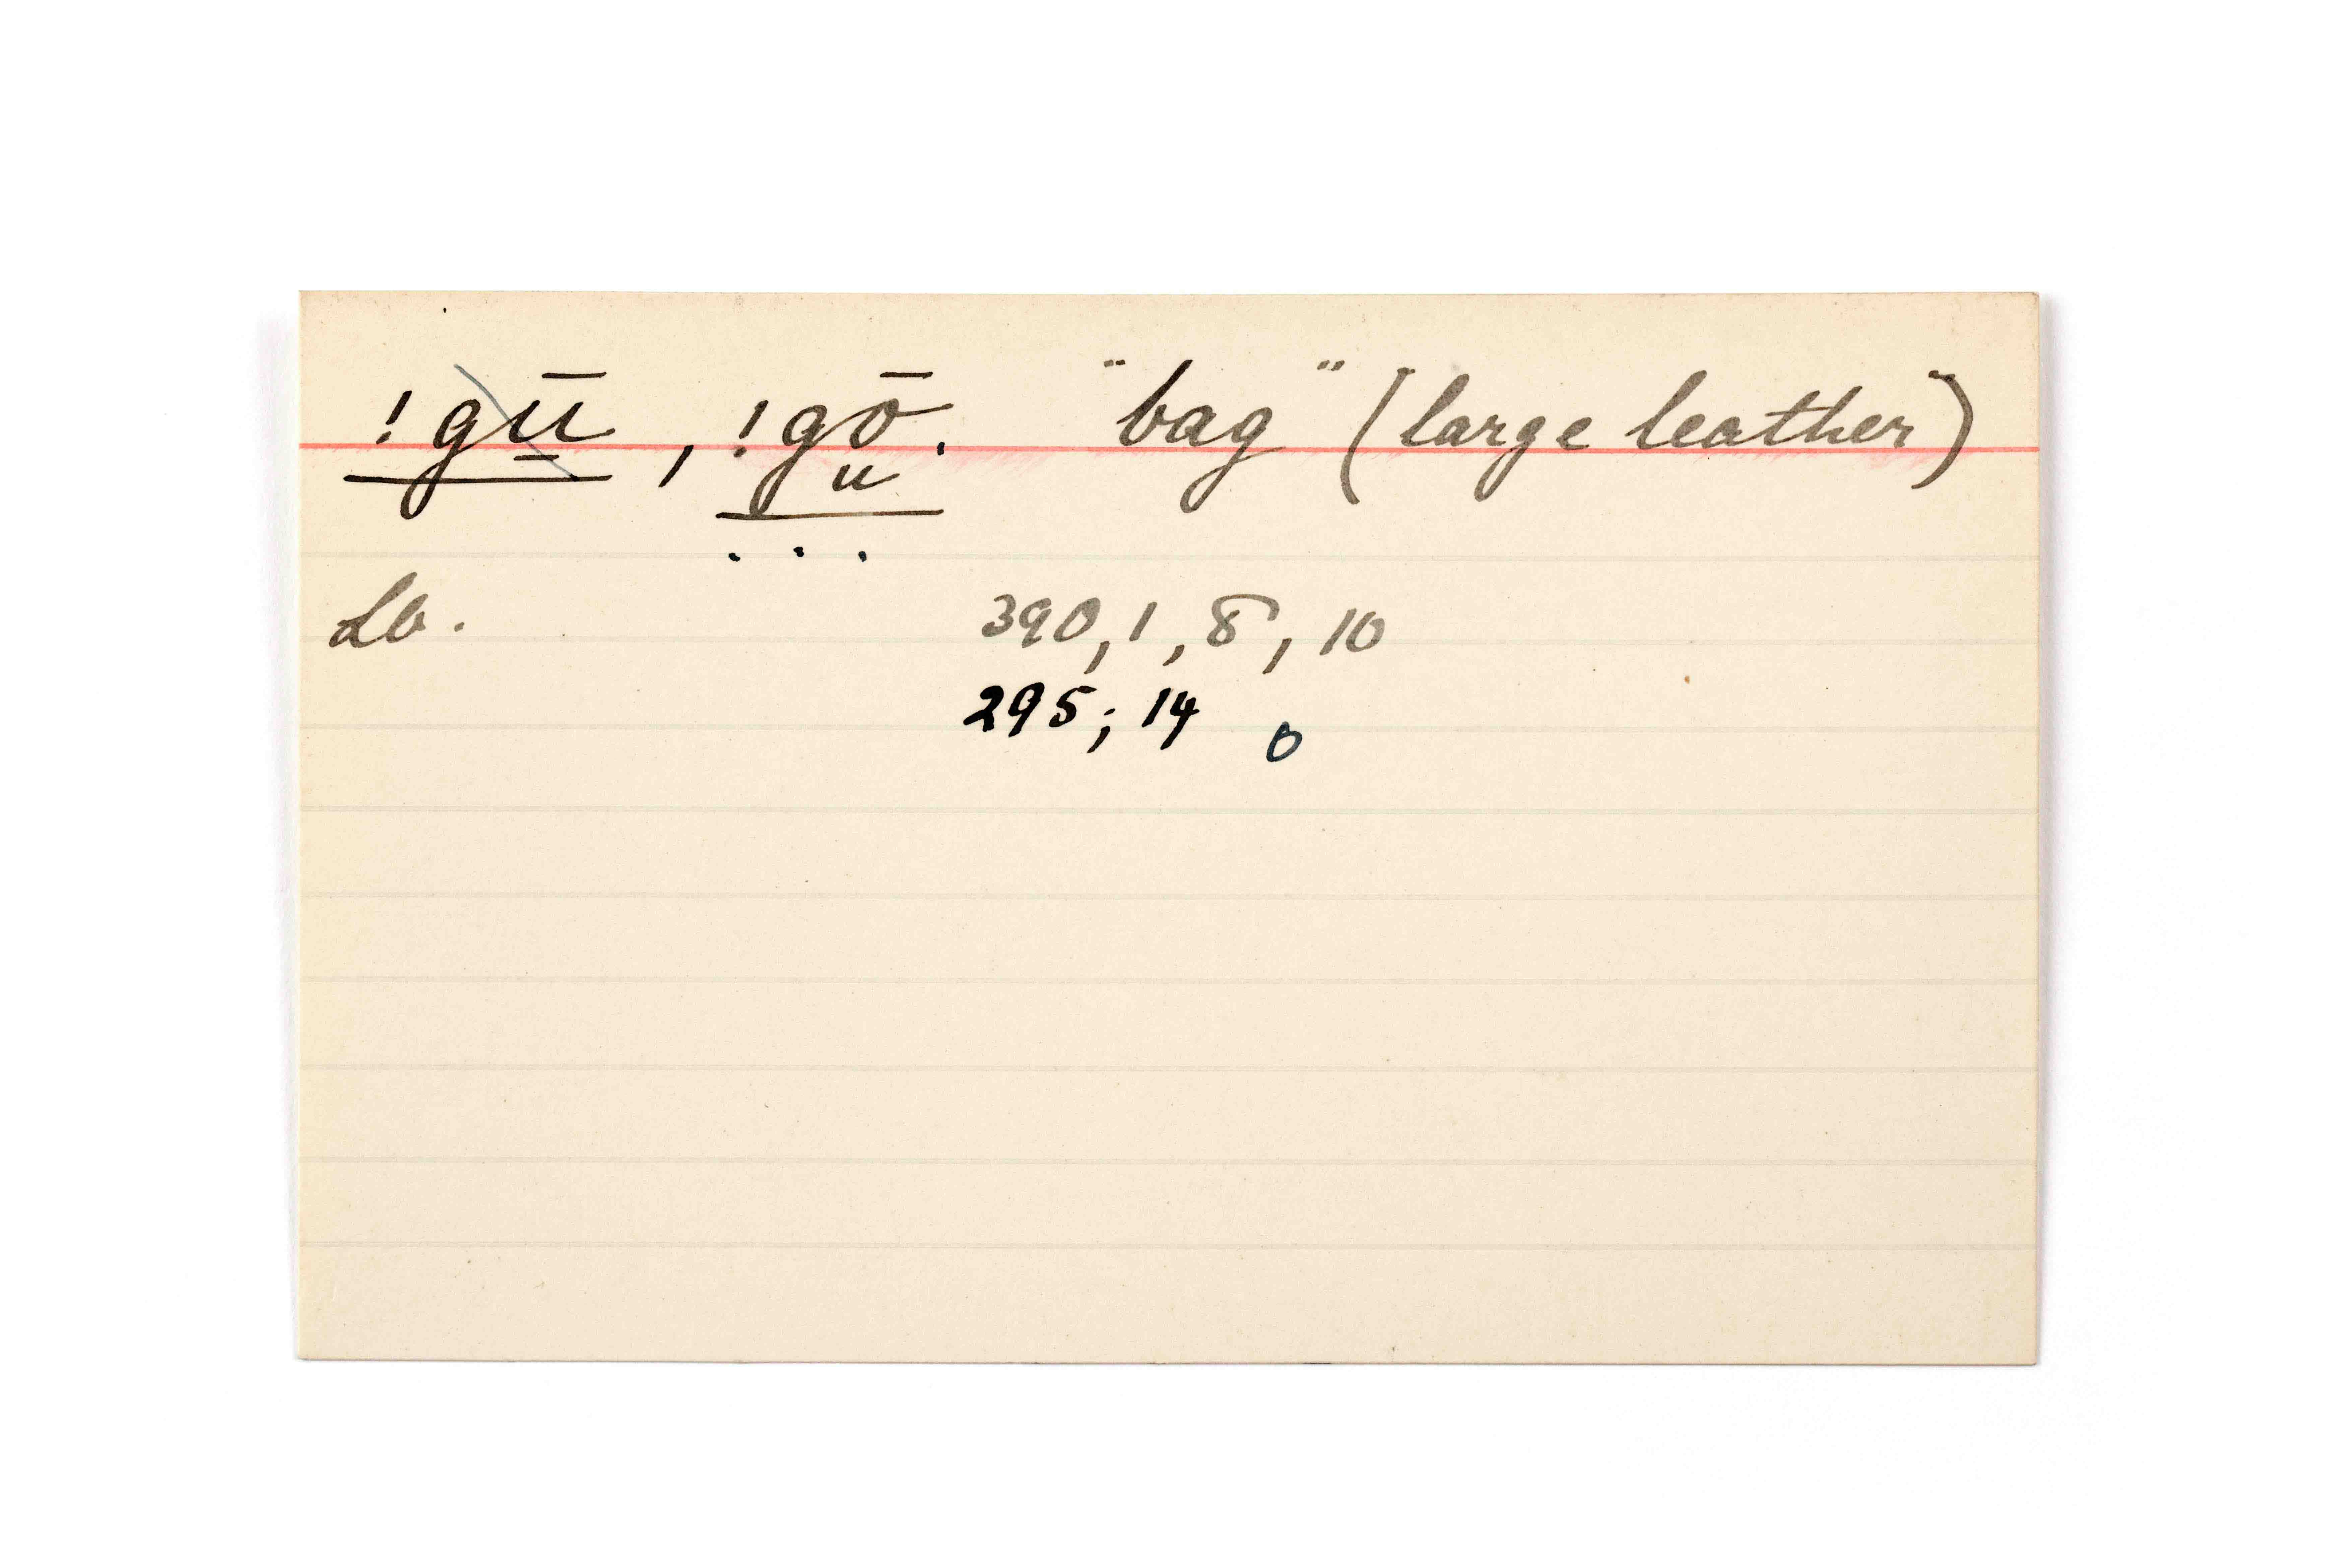 !gū̱, !gō. "bag" (large leather)
u
Lb. 390, 1, 8, 10
295; 14 o